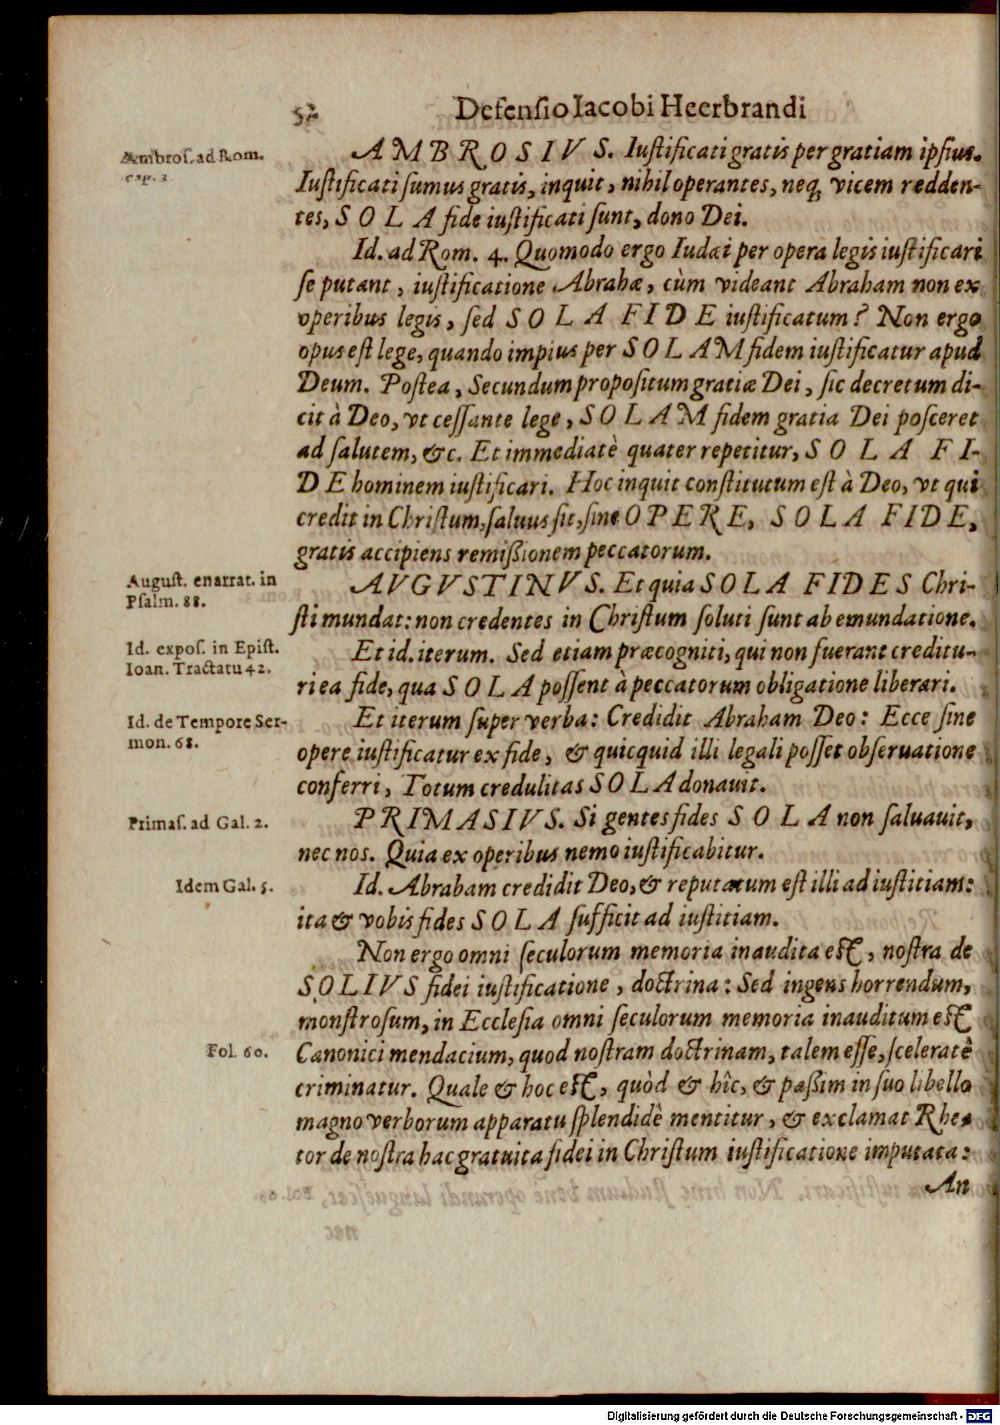 52 Defensio Iacobi Heerbrandi
Ambros. ad Rom.
cap. 3
AMBROSIVS. Iustificati gratis per gratiam ipsius.
Iustificati sumus gratis, inquit, nihil operantes, neq; vicem redden-
tes, SOLA fide iustificati sunt, dono Dei.
Id. ad Rom. 4. Quomodo ergo Iudæi per opera legis iustificari
se putant, iustificatione Abrahæ, cùm videant Abraham non ex
operibus legis, sed SOLA FIDE iustificatum? Non ergo
opus est lege, quando impius per SOLAM fidem iustificatur apud
Deum. Postea, Secundum propositum gratiæ Dei, sic decretum di-
cit à Deo, vt cessante lege, SOLAM fidem gratia Dei posceret
ad salutem, &c. Et immediatè quater repetitur, SOLA FI-
DE hominem iustificari. Hoc inquit constitutum est à Deo, vt qui
credit in Christum, saluus sit, sine OPERE, SOLA FIDE,
gratis accipiens remißionem peccatorum.
August. enarrat. in
Psalm. 88.
AVGVSTINVS. Et quia SOLA FIDES Chri-
sti mundat: non credentes in Christum soluti sunt ab emundatione.
Id. expos. in Epist.
Ioan. Tractatu 42.
Et id. iterum. Sed etiam præcogniti, qui non fuerant creditu-
ri ea fide, qua SOLA possent à peccatorum obligatione liberari.
Id. de Tempore Ser-
mon. 68.
Et iterum super verba: Credidit Abraham Deo: Ecce sine
opere iustificatur ex fide, & quicquid illi legali posset obseruatione
conferri, Totum credulitas SOLA donauit.
Primas. ad Gal. 2.
PRIMASIVS. Si gentes fides SOLA non saluauit,
nec nos. Quia ex operibus nemo iustificabitur.
Idem Gal. 5.
Id. Abraham credidit Deo, & reputatum est illi ad iustitiam:
ita & vobis fides SOLA sufficit ad iustitiam.
Non ergo omni seculorum memoria inaudita est, nostra de
SOLIVS fidei iustificatione, doctrina: Sed ingens horrendum,
monstrosum, in Ecclesia omni seculorum memoria inauditum est
Fol. 60.
Canonici mendacium, quod nostram doctrinam, talem esse, sceleratè
criminatur. Quale & hoc est, quòd & hîc, & paßim in suo libello
magno verborum apparatu splendidè mentitur, & exclamat Rhe-
tor de nostra hac gratuita fidei in Christum iustificatione imputata:
An
Digitalisierung gefördert durch die Deutsche Forschungsgemeinschaft - DFG